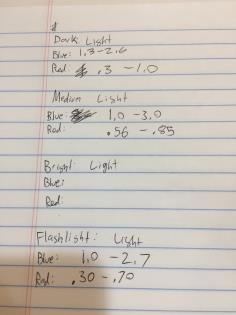 #
Dark Light
Blue: 1.3-2.6
Red: .3 - 1.0
Medium Light
Blue: 1.0 - 3.0
Red: .56 - .85
Bright: Light
Blue:
Red:
Flashlight: Light
Blue: 1.0 - 2.7
Red: .30 - .70